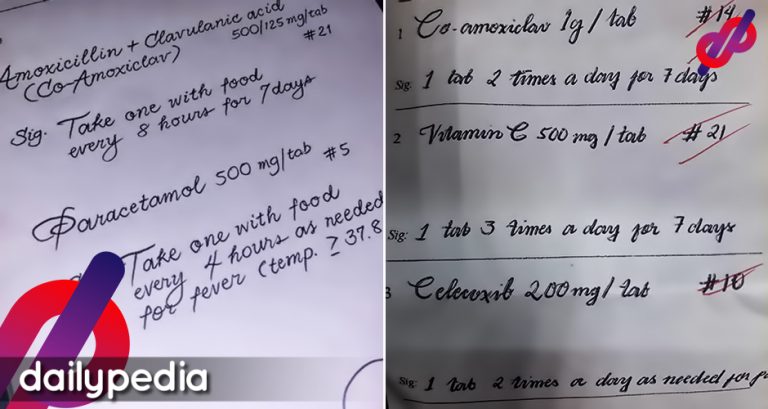 Amoxicillin + Clavulanic acid
(Co-Amoxiclav)
500/125 mg/tab
#21
Sig. Take one with food
every 8 hours for 7 days
Paracetamol 500 mg/tab #5
Take one with food
every 4 hours as needed
for fever (temp. ≥ 37.8
dailypedia
1 Co-amoxiclav 1g / tab #14
Sig: 1 tab 2 times a day for 7 days
2 Vitamin C 500 mg / tab #21
Sig: 1 tab 3 times a day for 7 days
3 Celecoxib 200 mg / tab #10
Sig: 1 tab 2 times a day as needed for